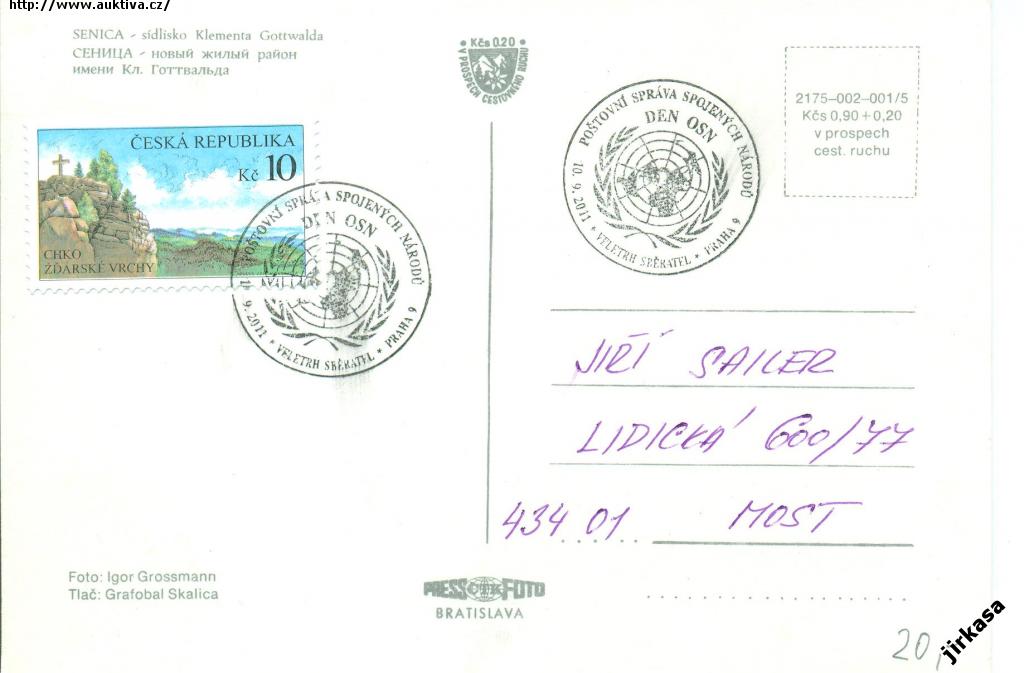 http://www.auktiva.cz/
SENICA - sídlisko Klementa Gottwalda
СЕНИЦА - новый жилый район
имени Кл. Готтвальда
• Kčs 0.20 •
V PROSPECH CESTOVNÉHO RUCHU
2175-002-001/5
Kčs 0,90 + 0,20
v prospech
cest. ruchu
ČESKÁ REPUBLIKA
Kč 10
CHKO
ŽĎÁRSKÉ VRCHY
POŠTOVNÍ SPRÁVA SPOJENÝCH NÁRODŮ
DEN OSN
10.9.2011 * VELETRH SBĚRATEL * PRAHA 9
POŠTOVNÍ SPRÁVA SPOJENÝCH NÁRODŮ
DEN OSN
10.9.2011 * VELETRH SBĚRATEL * PRAHA 9
JIŘÍ SAILER
LIDICKÁ 600/77
434 01 MOST
Foto: Igor Grossmann
Tlač: Grafobal Skalica
PRESS ČTK FOTO
BRATISLAVA
20,
jirkasa